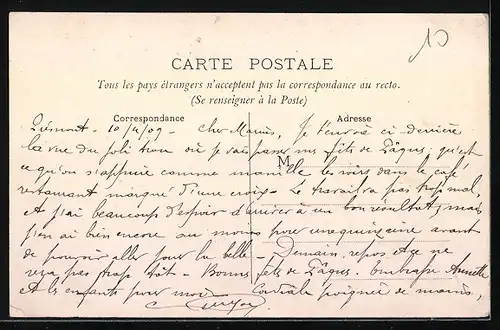 CARTE POSTALE
Tous les pays étrangers n'acceptent pas la correspondance au recto.
(Se renseigner à la Poste)
Correspondance Adresse
10/4/09 - Cher Marius, Je t'envoie ci derrière
la vue du joli trou où je vais passer mes fêts de Pâques; qu'est
M
ce qu'on s'appuie comme manille les soirs dans le café
restaurant marqué d'une croix. Le travail va pas trop mal,
et j'ai beaucoup d'espoir d'arriver à un bon résultat; mais
j'en ai bien encore au moins pour une quinzaine avant
de pouvoir aller pour la belle - Demain, repos. Ce ne
sera pas trop tôt - Bonnes fêts de Pâques. Embrasse
et les enfants pour moi - Cordiale poignée de mains,